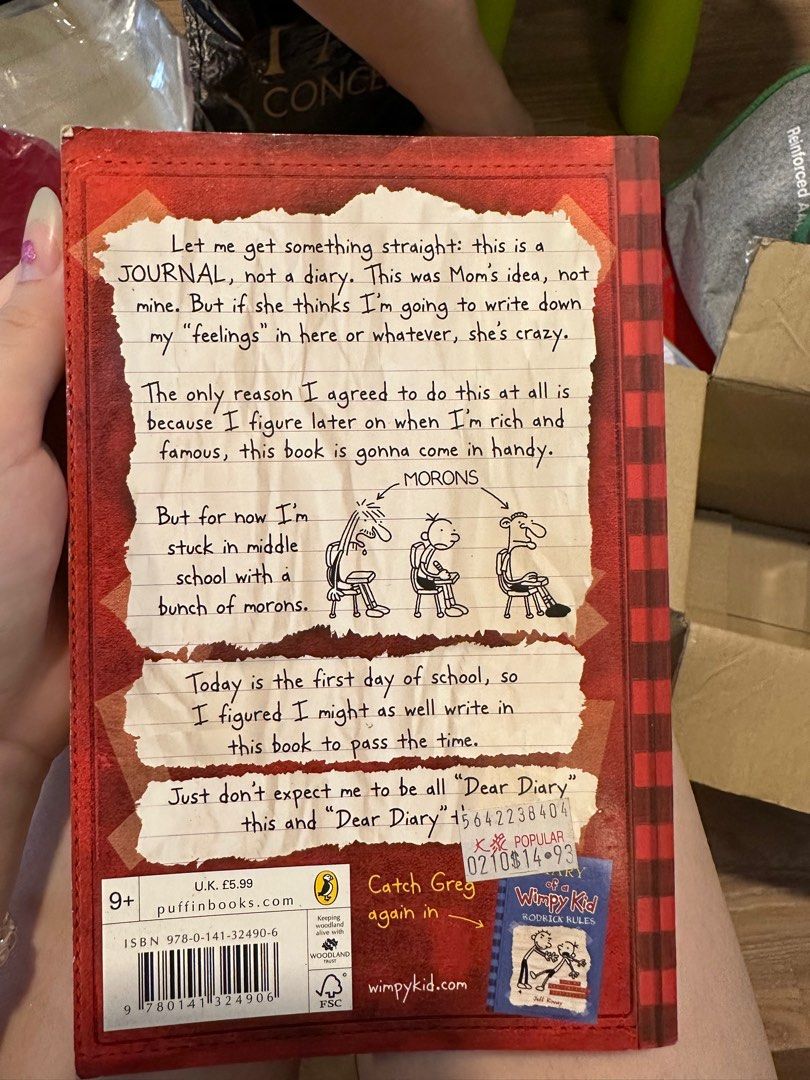 CONCE
Reinforced A
Let me get something straight: this is a
JOURNAL, not a diary. This was Mom's idea, not
mine. But if she thinks I'm going to write down
my "feelings" in here or whatever, she's crazy.
The only reason I agreed to do this at all is
because I figure later on when I'm rich and
famous, this book is gonna come in handy.
MORONS
But for now I'm
stuck in middle
school with a
bunch of morons.
Today is the first day of school, so
I figured I might as well write in
this book to pass the time.
Just don't expect me to be all "Dear Diary"
this and "Dear Diary"
5642238404
大众 POPULAR
0210$14.93
9+
U.K. £5.99
puffinbooks.com
ISBN 978-0-141-32490-6
9 780141 324906
Keeping
woodland
alive with
WOODLAND
TRUST
FSC
Catch Greg
again in
wimpykid.com
of a
Wimpy Kid
RODRICK RULES
Jeff Kinney